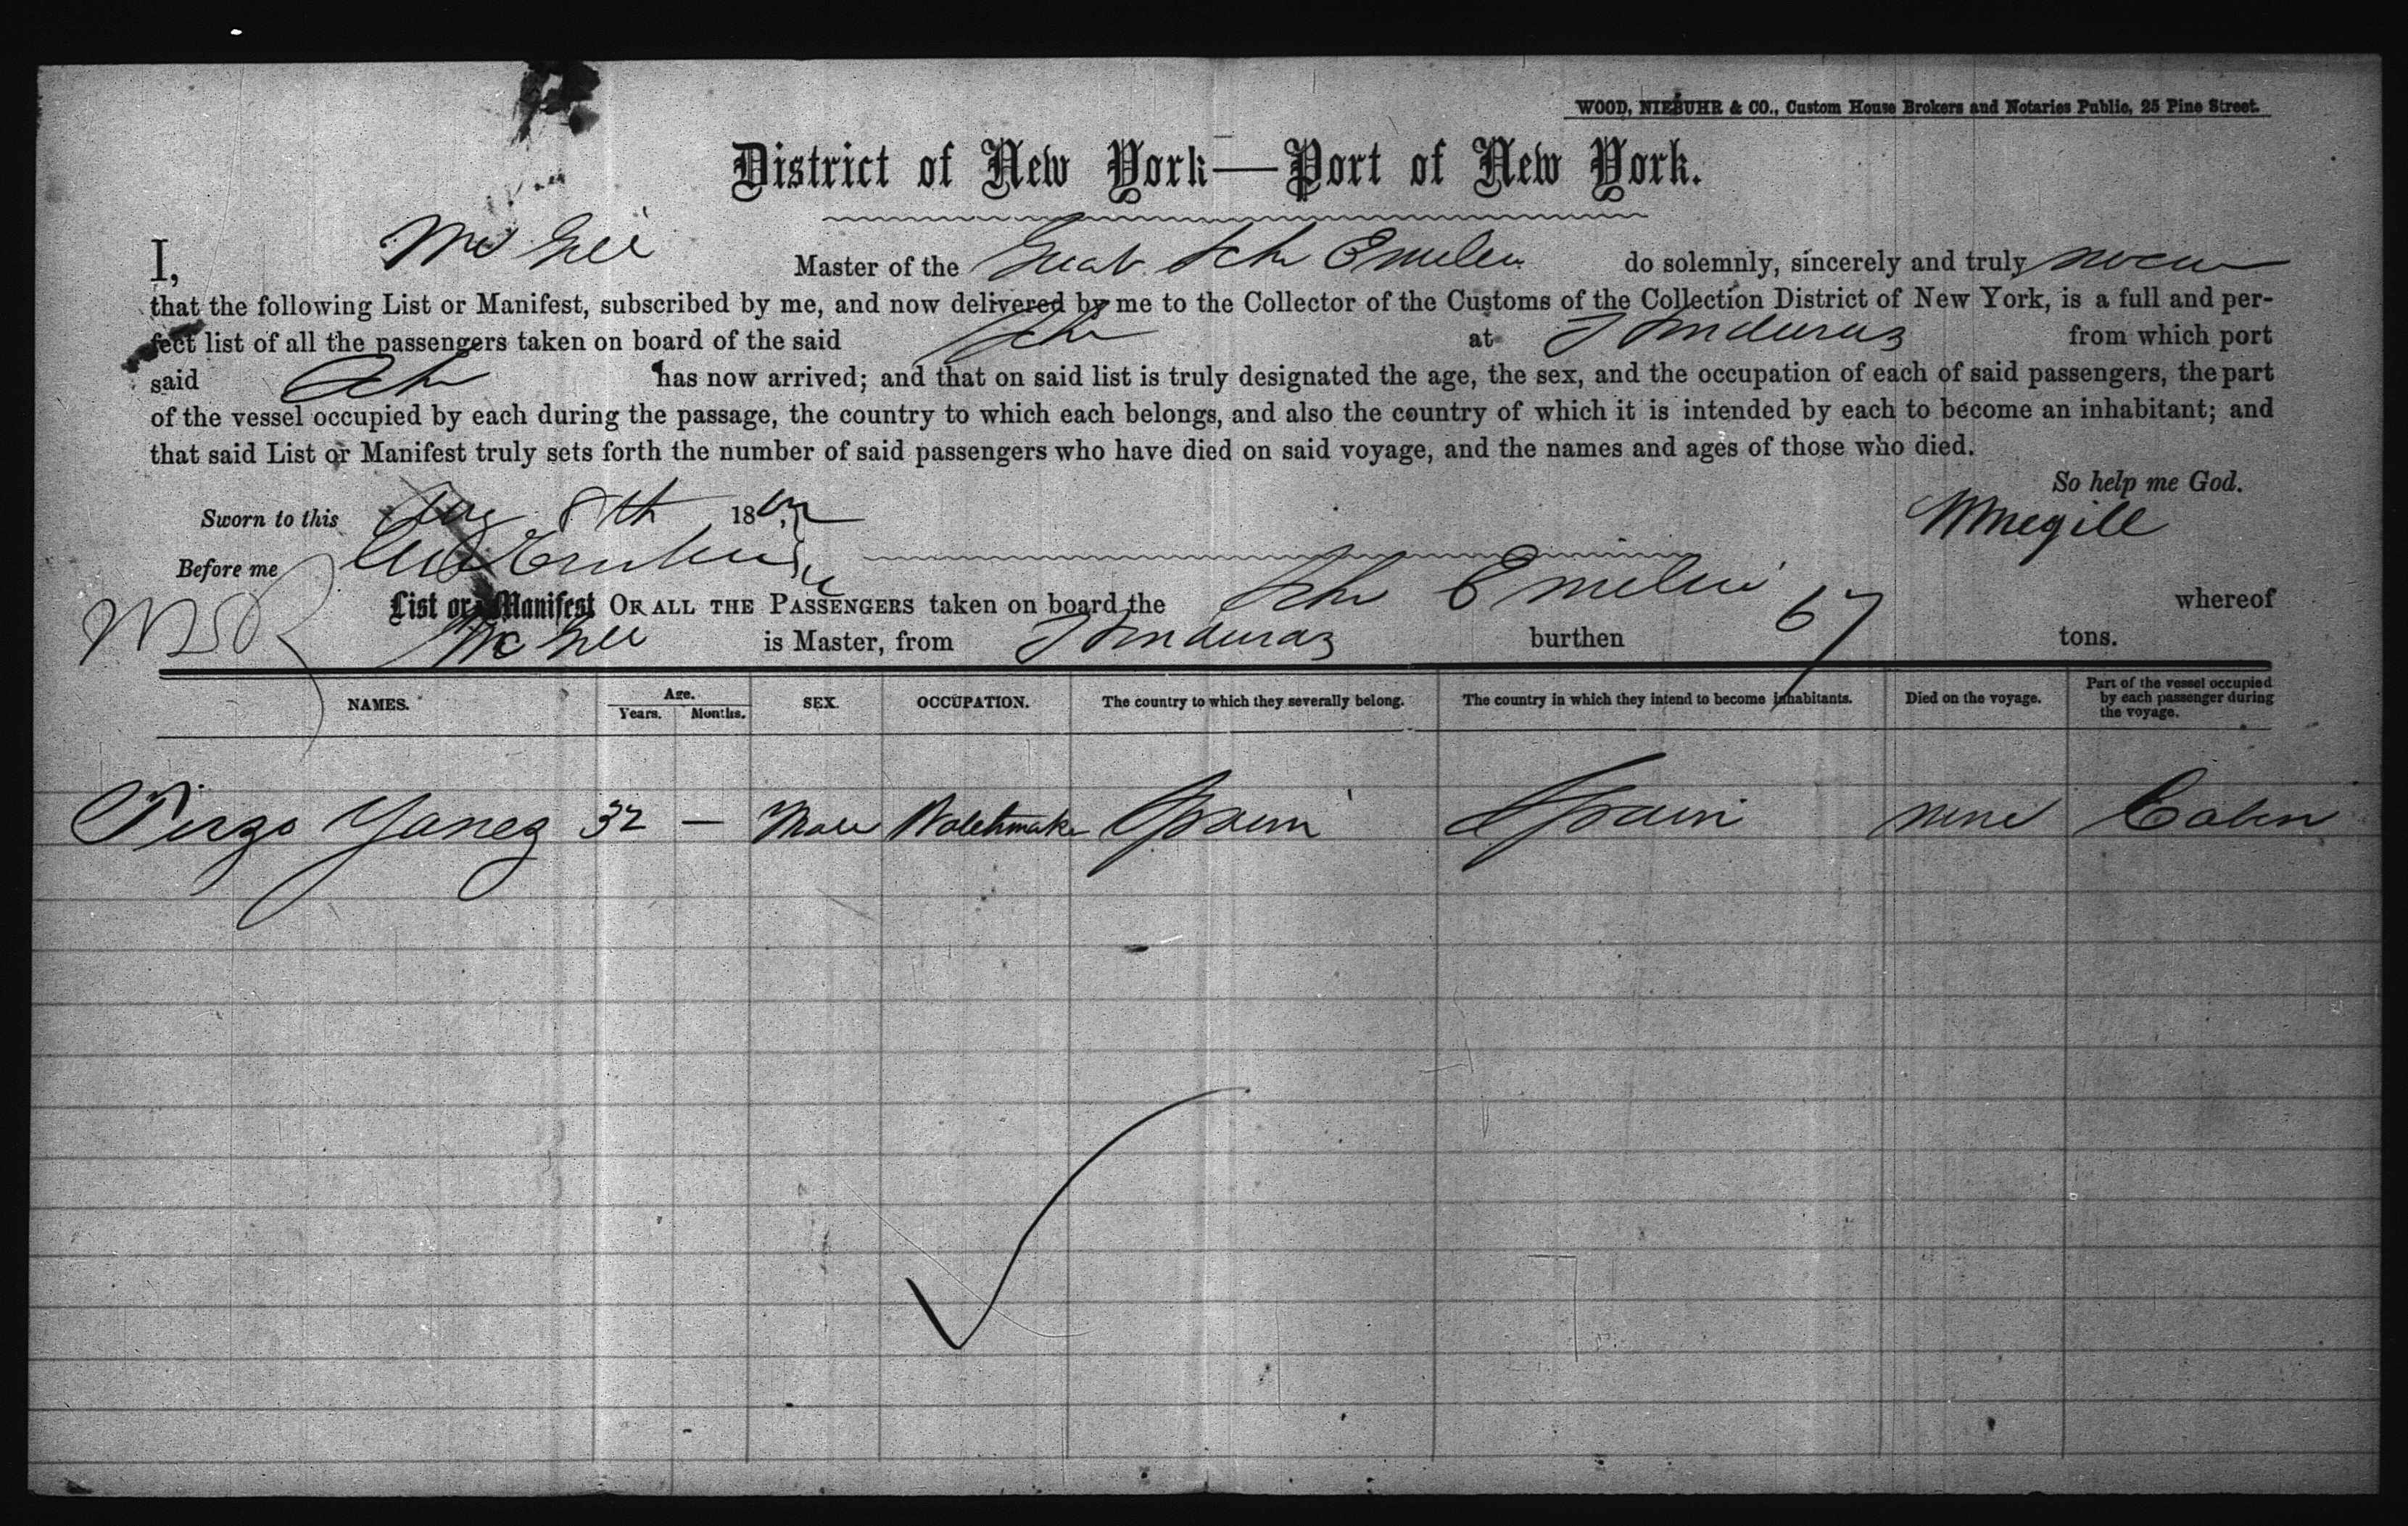 WOOD, NIEBUHR & CO., Custom House Brokers and Notaries Public, 25 Pine Street.
District of New York—Port of New York.
I, McGill Master of the Schr do solemnly, sincerely and truly swear
that the following List or Manifest, subscribed by me, and now delivered by me to the Collector of the Customs of the Collection District of New York, is a full and per-
fect list of all the passengers taken on board of the said Schr at Honduras from which port
said Schr has now arrived; and that on said list is truly designated the age, the sex, and the occupation of each of said passengers, the part
of the vessel occupied by each during the passage, the country to which each belongs, and also the country of which it is intended by each to become an inhabitant; and
that said List or Manifest truly sets forth the number of said passengers who have died on said voyage, and the names and ages of those who died.
So help me God.
Sworn to this Aug 8th 18
Wmcgill
Before me
List or Manifest OF ALL THE PASSENGERS taken on board the Schr whereof
McGill is Master, from Honduras burthen 67 tons.
NAMES. Age. Years. Months. SEX. OCCUPATION. The country to which they severally belong. The country in which they intend to become inhabitants. Died on the voyage. Part of the vessel occupied by each passenger during the voyage.
Tirzo Yanez 32 — Male Watchmaker Spain Spain none Cabin